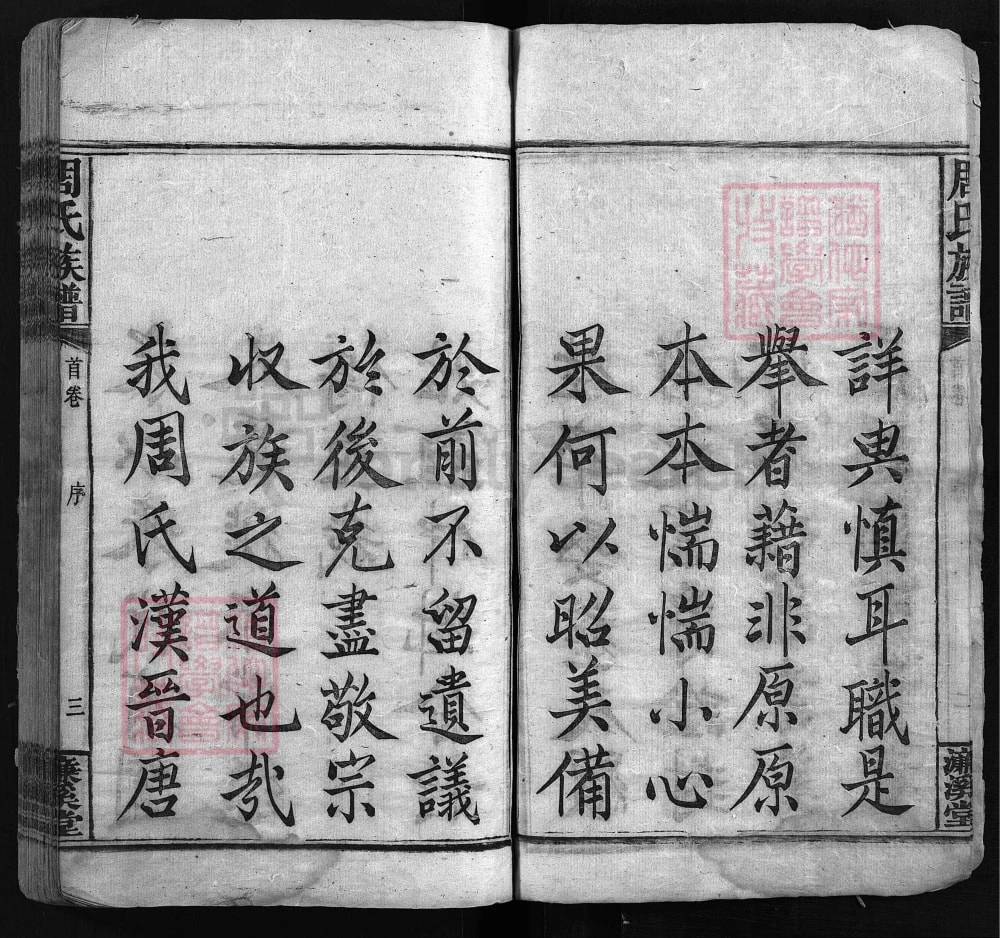 周氏族譜
濂溪堂
詳與慎耳職是
舉者藉非原原
本本惴惴小心
果何以昭美備
於前不留遺議
於後克盡敬宗
收族之道也哉
我周氏漢晉唐
周氏族譜
首卷
序
三
濂溪堂